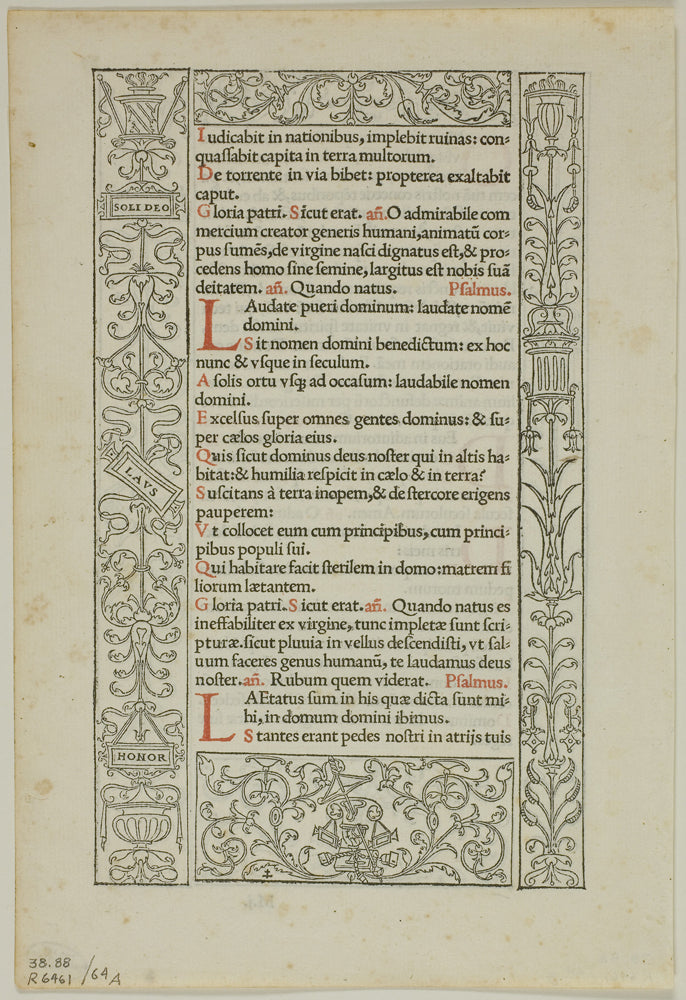 SOLI DEO
LAVS
HONOR
Iudicabit in nationibus, implebit ruinas: con-
quaſſabit capita in terra multorum.
De torrente in via bibet: propterea exaltabit
caput.
Gloria patri. Sicut erat. añ. O admirabile com
mercium creator generis humani, animatū cor-
pus ſumēs, de virgine naſci dignatus eſt, & pro-
cedens homo ſine ſemine, largitus eſt nobis ſuā
deitatem. añ. Quando natus. Pſalmus.
LAudate pueri dominum: laudate nomē
domini.
Sit nomen domini benedictum: ex hoc
nunc & vſque in ſeculum.
A ſolis ortu vſqꝫ ad occaſum: laudabile nomen
domini.
Excelſus ſuper omnes gentes dominus: & ſu-
per cælos gloria eius.
Quis ſicut dominus deus noſter qui in altis ha-
bitat: & humilia reſpicit in cælo & in terra?
Suſcitans à terra inopem, & de ſtercore erigens
pauperem:
Vt collocet eum cum principibus, cum princi-
pibus populi ſui.
Qui habitare facit ſterilem in domo: matrem fi
liorum lætantem.
Gloria patri. Sicut erat. añ. Quando natus es
ineffabiliter ex virgine, tunc impletæ ſunt ſcri-
pturæ. ſicut pluuia in vellus deſcendiſti, vt ſal-
uum faceres genus humanū, te laudamus deus
noſter. añ. Rubum quem viderat. Pſalmus.
LAEtatus ſum in his quæ dicta ſunt mi-
hi, in domum domini ibimus.
Stantes erant pedes noſtri in atrijs tuis
38.88
R6461 / 64A